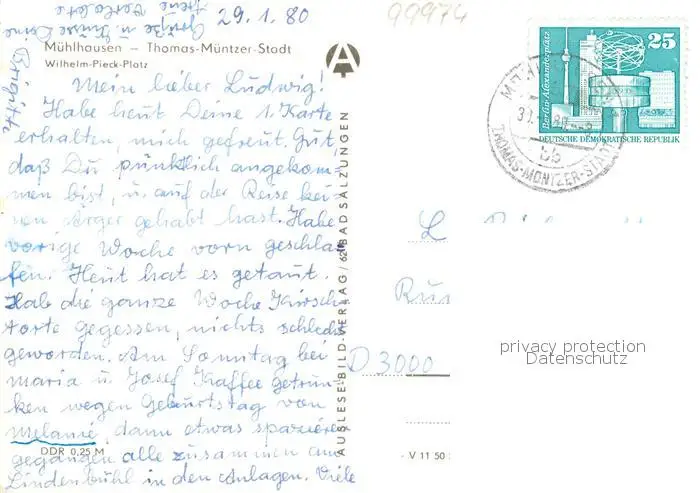 29. 1. 80
99974
Grüße u. Küsse Deine
Brigitte
Mühlhausen – Thomas-Müntzer-Stadt
Wilhelm-Pieck-Platz
Mein lieber Ludwig!
Habe heut Deine 1. Karte
erhalten, mich gefreut. Gut,
daß Du pünktlich angekom„
men bist, u. auf der Reise kei„
nen Ärger gehabt hast. Habe
vorige Woche vorn geschla„
fen. Heut hat es getaut.
Hab die ganze Woche Kirsch
torte gegessen, nichts schlecht
geworden. Am Sonntag bei
Maria u. Josef Kaffee getrun„
ken wegen Geburtstag von
Melanie, dann etwas spazieren
DDR 0,25 M
gegangen alle zusammen am
Lindenbühl in den Anlagen. Viele
AUSLESE-BILD-VERLAG / 62 BAD SALZUNGEN
Berlin-Alexanderplatz
25
DEUTSCHE DEMOKRATISCHE REPUBLIK
bb
THOMAS-MÜNTZER-STADT
L
Run
D 3000
privacy protection
Datenschutz
V 11 50